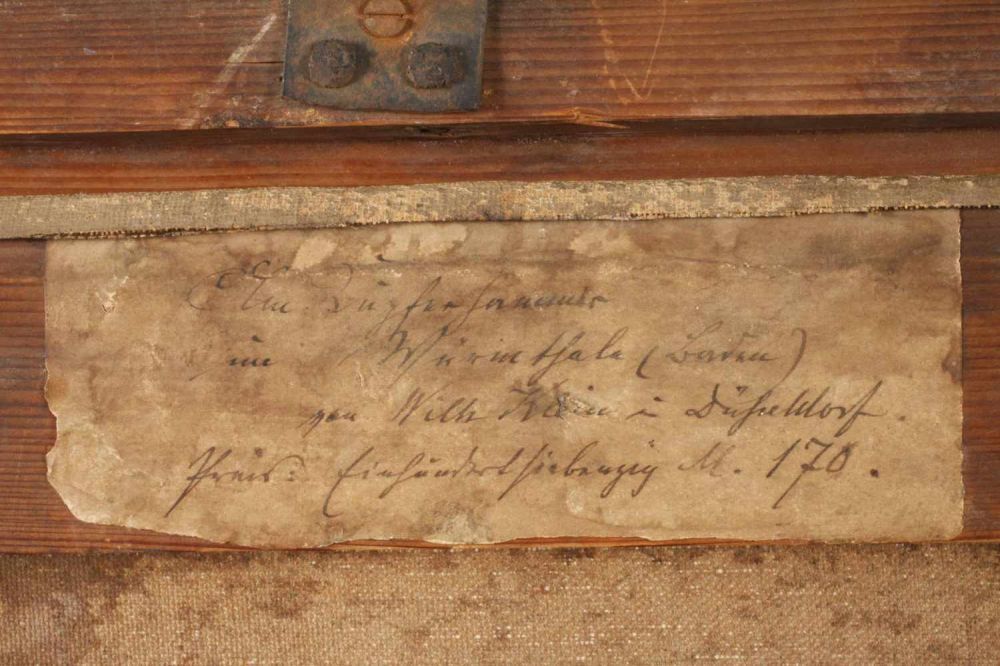 Am Kupferhammer
im Würmthale (Baden)
von Wilh. Klein i. Düsseldorf.
Preis: Einhundertsiebenzig M. 170.